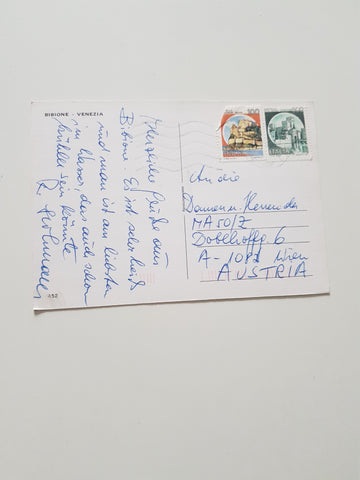 BIBIONE - VENEZIA
Herzliche Grüße aus
Bibione. Es ist sehr heiß
und man ist am liebsten
im Wasser, das auch schon
kühler sein könnte
An die
Damen u. Herren der
MA 50/Z
Doblhoffg 6
A - 1082 Wien
AUSTRIA
100
452